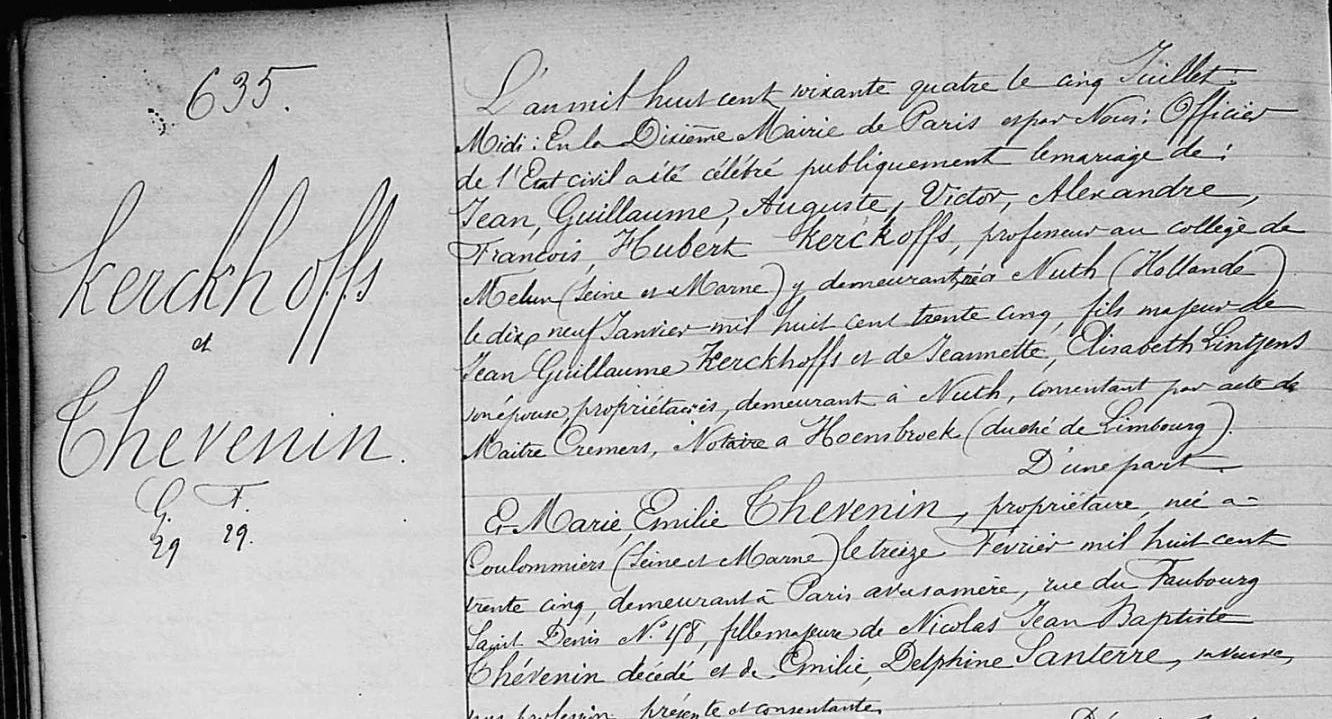 635.
Kerckhoffs
et
Thevenin.
G. F.
29 29.
L'an mil huit cent soixante quatre le cinq Juillet :
Midi : En la Dixième Mairie de Paris et par Nous : Officier
de l'Etat civil a été célébré publiquement le mariage de :
Jean, Guillaume, Auguste, Victor, Alexandre,
François, Hubert Kerckoffs, professeur au collège de
Melun (Seine et Marne) y demeurant, né à Nuth (Hollande)
le dix neuf Janvier mil huit cent trente cinq, fils majeur de
Jean Guillaume Kerckhoffs et de Jeannette, Elisabeth Lintjens
son épouse, propriétaires, demeurant à Nuth, consentant par acte de
Maitre Cremers, Notaire a Hoensbroek (duché de Limbourg).
D'une part.
Et Marie, Emilie Thevenin, propriétaire, née a =
Coulommiers (Seine et Marne) le treize Février mil huit cent
trente cinq, demeurant à Paris avec sa mère, rue du Faubourg
Saint Denis N.° 158, fille majeure de Nicolas Jean Baptiste
Thévenin décédé et de Emilie, Delphine Santerre, sa veuve,
sans profession, présente et consentante,